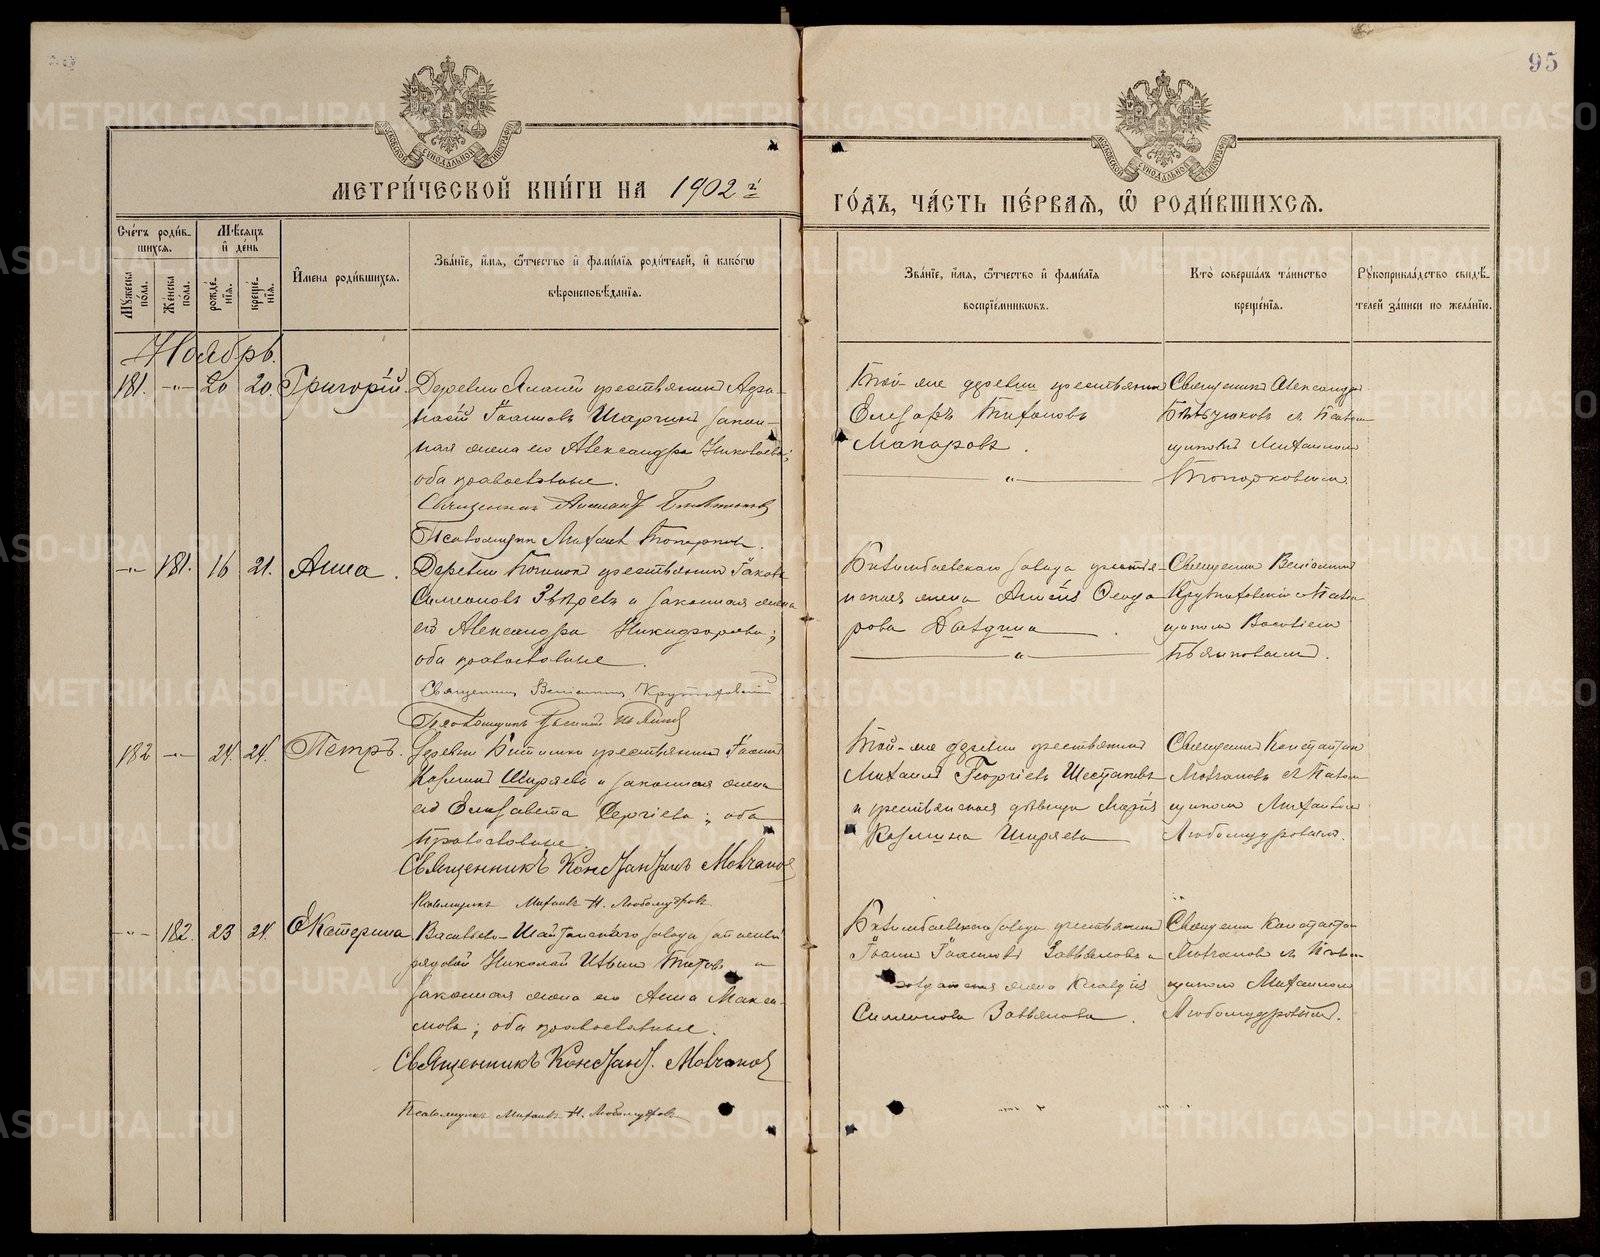 95
МЕТРИ́ЧЕСКОЙ КНИ́ГИ НА 1902 г.
ГО́ДЪ, ЧА́СТЬ ПЕ́РВАЯ, Ѽ РОДИ́ВШИХСЯ.
Сче́тъ роди́в-
шихся.
Мѣ́сяцъ
и҆ де́нь
Му́жеска
по́ла.
Же́нска
по́ла.
рожде́-
нїя.
креще́-
нїя.
И҆мена роди́вшихся.
Зва́нїе, и҆́мя, ѻ҆́тчество и҆ фами́лїя роди́телей, и҆ како́гѡ
вѣроисповѣ́данїя.
Зва́нїе, и҆́мя, ѻ҆́тчество и҆ фами́лїя
воспрїе́мниковъ.
Кто̀ соверша́лъ та́инство
креще́нїя.
Рꙋкоприкла́дство свидѣ́-
телей за́писи по жела́нїю.
Ноябрь.
181. -„- 20 20. Григорій.
Деревни крестьянинъ
Іоанновъ Шаргинъ закон-
ная жена его Александра Николаева;
оба православные.
Священникъ
Псаломщикъ Михаилъ Топорковъ.
Той-же деревни крестьянинъ
Елизаръ Тихоновъ
Макаровъ.
Священникъ Александръ
съ Псалом-
щикомъ Михаиломъ
Топорковымъ
-„- 181. 16 21. Анна.
Деревни крестьянинъ Іаковъ
Симеоновъ Звѣревъ и законная жена
его Александра Никифорова;
оба православные.
Священникъ Веніаминъ Крутиховскій
Псаломщикъ
Билимбаевскаго завода крестья-
нская жена Ѳеодо-
рова
Священникъ Веніаминъ
Крутиховскій съ Псалом-
щикомъ Василіемъ
182 -„- 24. 24. Петръ.
Деревни Битимки крестьянинъ Іоаннъ
Козминъ Ширяевъ и законная жена
его Елисавета Сергіева; оба
православные.
Священникъ Константинъ Молчановъ
Псаломщикъ Михаилъ Н. Любомудровъ
Той-же деревни крестьянинъ
Михаилъ Георгіевъ Шестаковъ
и крестьянская дѣвица Марія
Козмина Ширяева
Священникъ Константинъ
Молчановъ съ Псалом-
щикомъ Михаиломъ
Любомудровымъ.
-„- 182. 23 24. Екатерина
Васильево-Шайтанскаго завода запасный
рядовой Николай Ильинъ Титовъ и
законная жена его Анна Макси-
мова; оба православные.
Священникъ Констант. Молчановъ
Псаломщикъ Михаилъ Н. Любомудровъ
Билимбаевскаго завода крестьянинъ
Іоаннъ Іоанновъ Завьяловъ и
жена Клавдія
Симеонова Завьялова.
Священникъ Константинъ
Молчановъ съ Псалом-
щикомъ Михаиломъ
Любомудровымъ.
METRIKI.GASO-URAL.RU